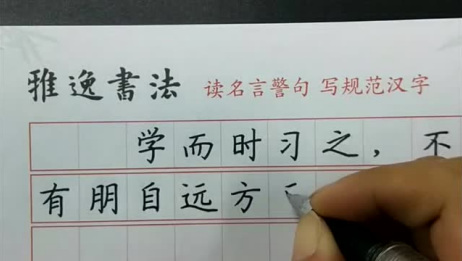 雅逸書法 读名言警句 写规范汉字
学而时习之，不
有朋自远方